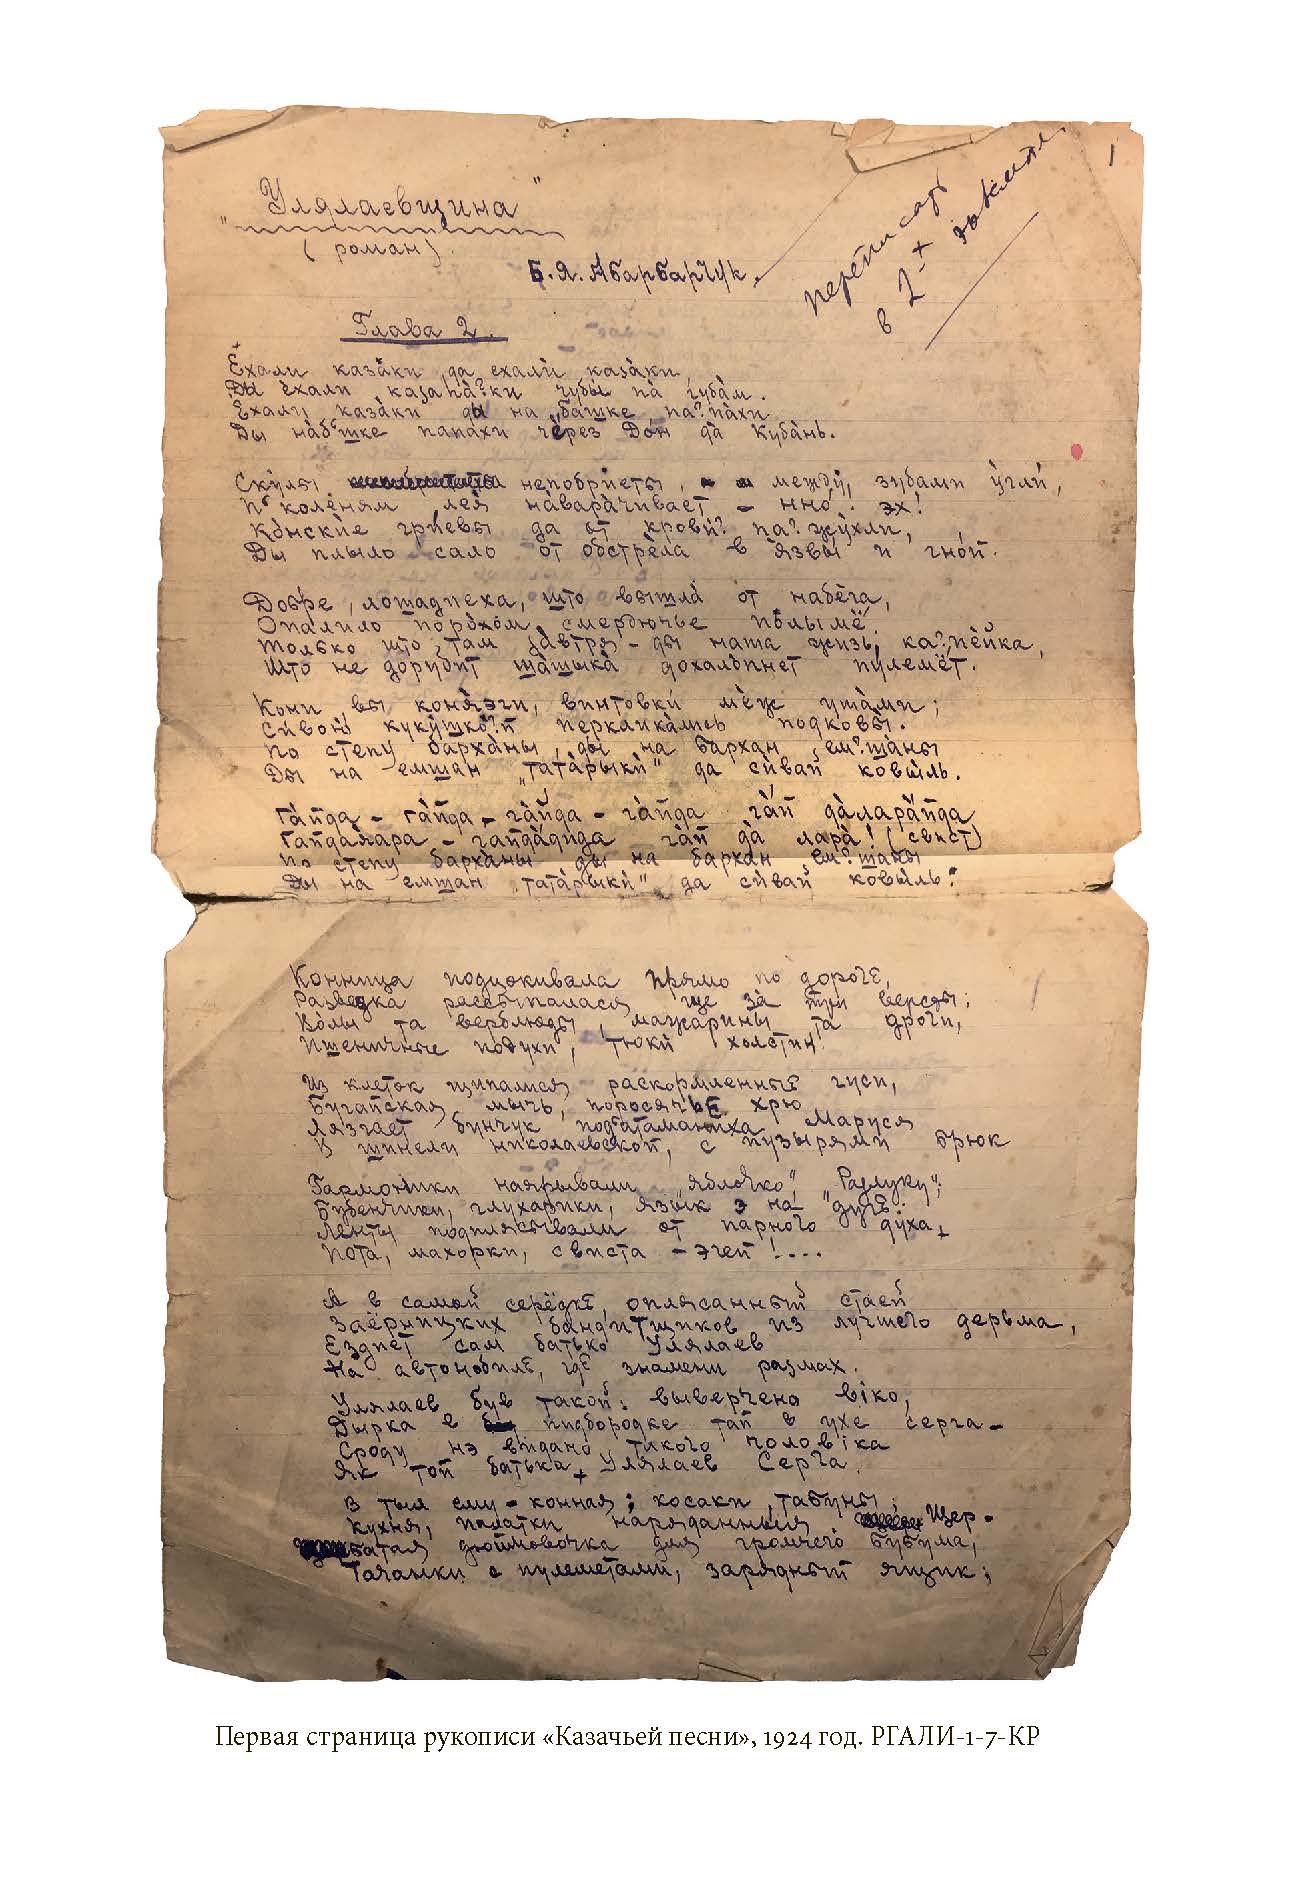 1
переписать
в 2-х
"Улялаевщина"
(роман).
Б.Я. Абарбарчук.
Глава 2.
Ёхали казáки, да ехали казáки,
Ды ехали казапа?ки чубы па губам.
Ехали казáки ды на башке па?пáхи
Ды наб'шке папахи через Дон да Кубань.
Скулы непобриты, между зубами угли,
П' коленям лея наварачивает – нно! эх!
Конские гривы да от крови? па?жухли,
Ды плыло сало от обстрела в язвы и гной.
Добре, лошадиеха, што вышла от набега,
Опалило порохом, смердючье полымё.
Только што там завтря – ды наша жизь ка?пейка,
Што не дорубит шашыка дохлопнет пулемёт.
Кони вы коняэги, винтовки меж ушами;
Сивою кукушко?й перкликались подковы.
По степу барханы, ды на бархан ем?шаны
Ды на емшан „татарыки" да сивай ковыль.
Гайда – гайда – гайда – гайда гай даларайда
Гайдаяра – гайдадида гай да лара! (свист)
По степу барханы ды на бархан ем?шаны
Ды на емшан „татарыки" да сивай ковыль."
Конница подцокивала прямо по дороге,
Разведка рассыпалася ще за три версты;
Волы та верблюды, мажарины та дроги,
Пшеничные подухи, тюки холстин.
Из клеток щипалися раскормленные гуси,
Бугайская мычь, поросячье хрю
Лязгает бунчук подъатаманиха Маруся
В шинели николаевской, с пузырями брюк
Гармоники наяривали "яблочко" "Разлуку";
Бубенчики, глухарики, язык э на "дуге:
Ленты подплясывали от парного духа,
Пота, махорки, свиста – эгей!....
А в самой серёдке, оплясанный стаей
Заёрницких бандитщиков из лучшего дерьма,
Ездиет сам батько Улялаев
На автомобиле, где знамени размах.
Улялаев був такой: выверчено вiко,
Дырка в пидбородке тай в ухе серга –
Сроду нэ видано такого чоловiка
Як той батька Улялаев Серга.
В тыл ему – конная; косаки, табуны;
Кухня, палатки наряданныя Щер-
батая дюймовочка для громчего бубума,
Тачанки с пулеметами, зарядный ящик;
Первая страница рукописи «Казачьей песни», 1924 год. РГАЛИ-1-7-КР